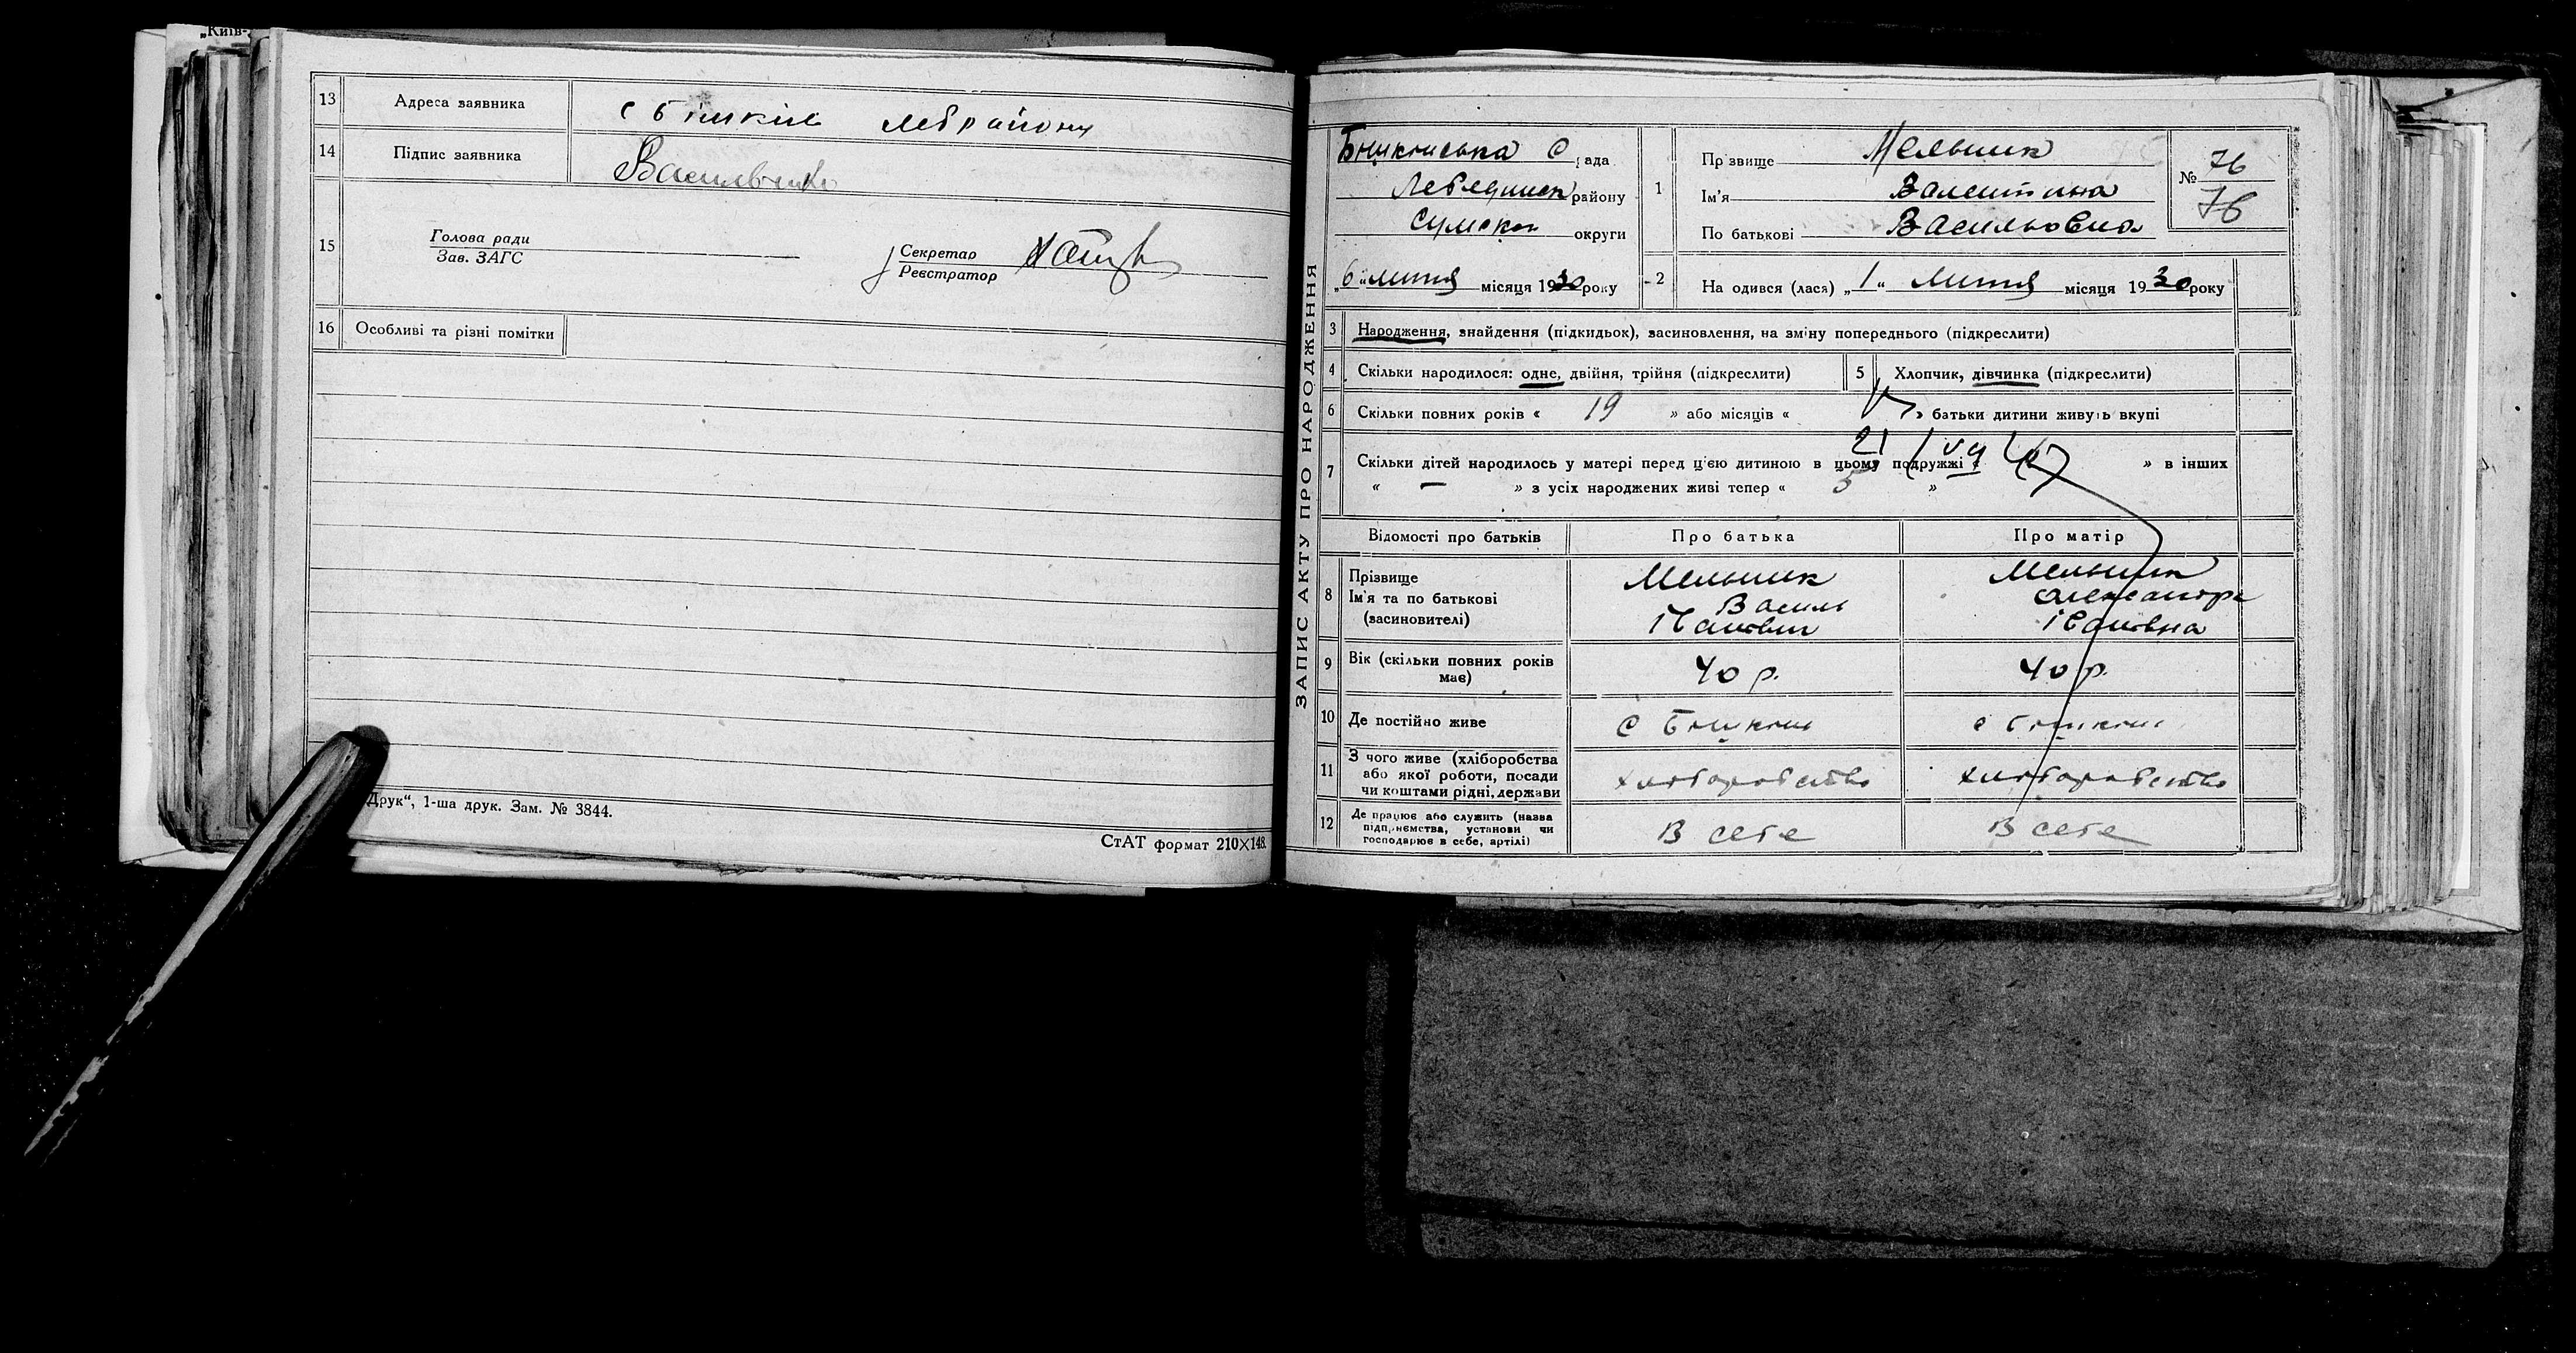 „Київ-
13 Адреса заявника с Бішкінь Леб району
14 Підпис заявника Васильченко
15 Голова ради
Зав. ЗАГС
Секретар
Реєстратор
16 Особливі та різні помітки
Друк“, 1-ша друк. Зам. № 3844.
СтАТ формат 210×148.
ЗАПИС АКТУ ПРО НАРОДЖЕННЯ
Бишкінська С рада
Лебединск району
Сумскои округи
„6“ липня місяця 1930 року
1 Прізвище Мельник
Ім'я Валентина
По батькові Васильовна
№ 76
76
2 Народився (лася) „1“ Липня місяця 1930 року
3 Народження, знайдення (підкидьок), засиновлення, на зміну попереднього (підкреслити)
4 Скільки народилося: одне, двійня, трійня (підкреслити)
5 Хлопчик, дівчинка (підкреслити)
6 Скільки повних років « 19 » або місяців « » батьки дитини живуть вкупі
21
7 Скільки дітей народилось у матері перед цією дитиною в цьому подружжі « » в інших
« — » з усіх народжених живі тепер « 5 »
Відомості про батьків Про батька Про матір
8 Прізвище
Ім'я та по батькові
(засиновителі)
Мельник
Василь
Іванович
Мельник
Олександра
Івановна
9 Вік (скільки повних років
має)
40 р.
40 р.
10 Де постійно живе с Бишкінь с Бишкінь
11 З чого живе (хліборобства
або якої роботи, посади
чи коштами рідні, держави
хліборобство
хліборобство
12 Де працює або служить (назва
підприємства, установи чи
господарює в себе, артілі)
В себе
В себе